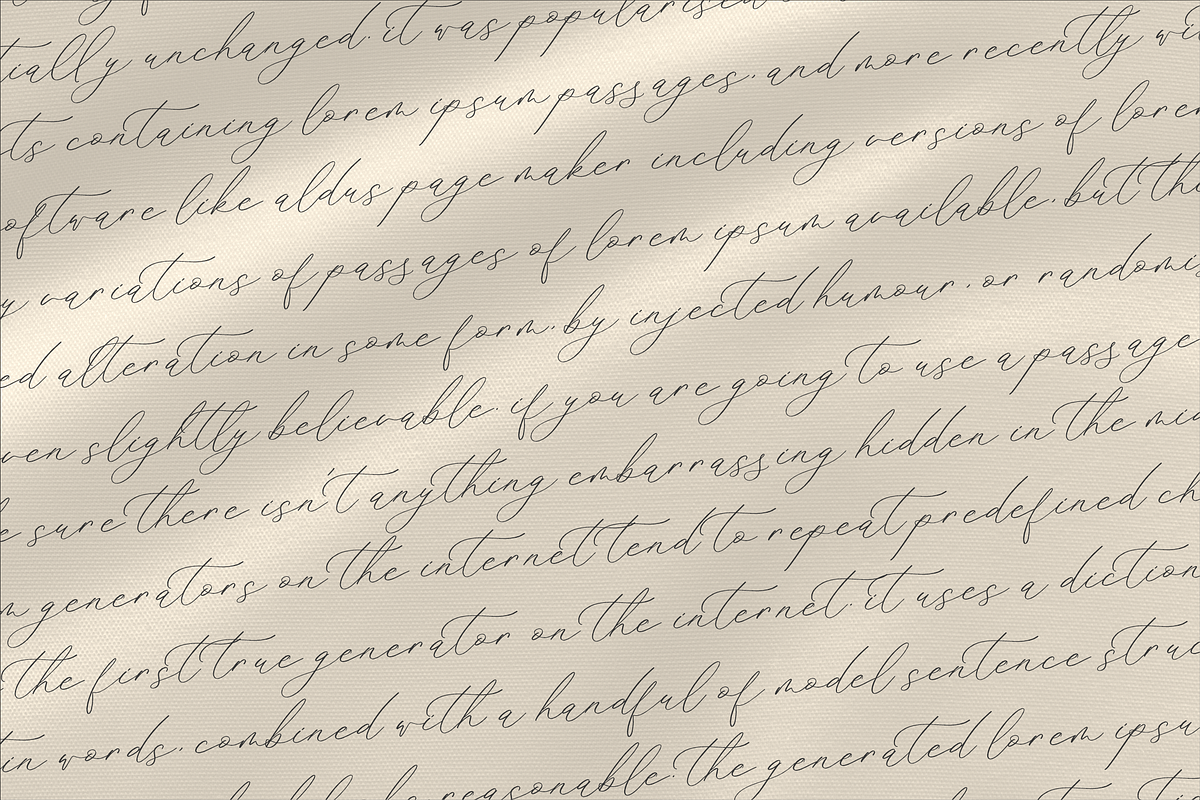 tially unchanged. it was popularised
ts containing lorem ipsum passages. and more recently wi
oftware like aldus page maker including versions of lorem
y variations of passages of lorem ipsum available. but th
ed alteration in some form. by injected humour. or randomis
ven slightly believable. if you are going to use a passage
e sure there isn't anything embarrassing hidden in the mid
m generators on the internet tend to repeat predefined ch
the first true generator on the internet. it uses a diction
in words. combined with a handful of model sentence struc
reasonable. the generated lorem ipsu